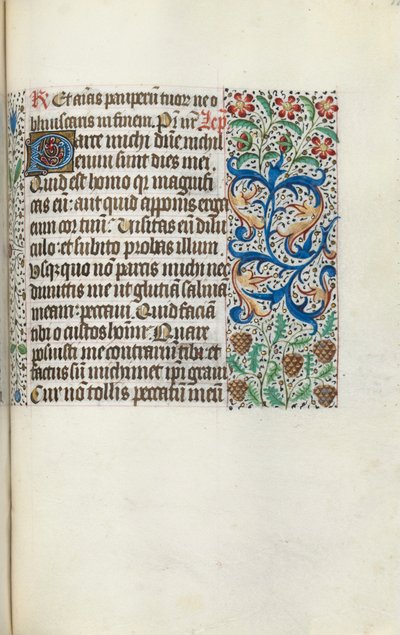 R Et aīas pauperū tuoꝝ ne o
bliuiscaris in finem. Pī nr̄ Lc̄p
Parce michi dn̄e michil
enim sunt dies mei.
Quid est homo qr magnifi
cas eū: aut quid apponis erga
eum cor tuū. Visitas eū dilu
culo: et subito probas illum.
Usq;quo nō parcis michi nec
dimittis me ut glutiā saliuā
meam: peccaui. Quid faciā
tibi o custos hoīm: Quare
posuisti me contrariū tibi: et
factus sū michimet ipi grauis
Cur nō tollis peccatū meū